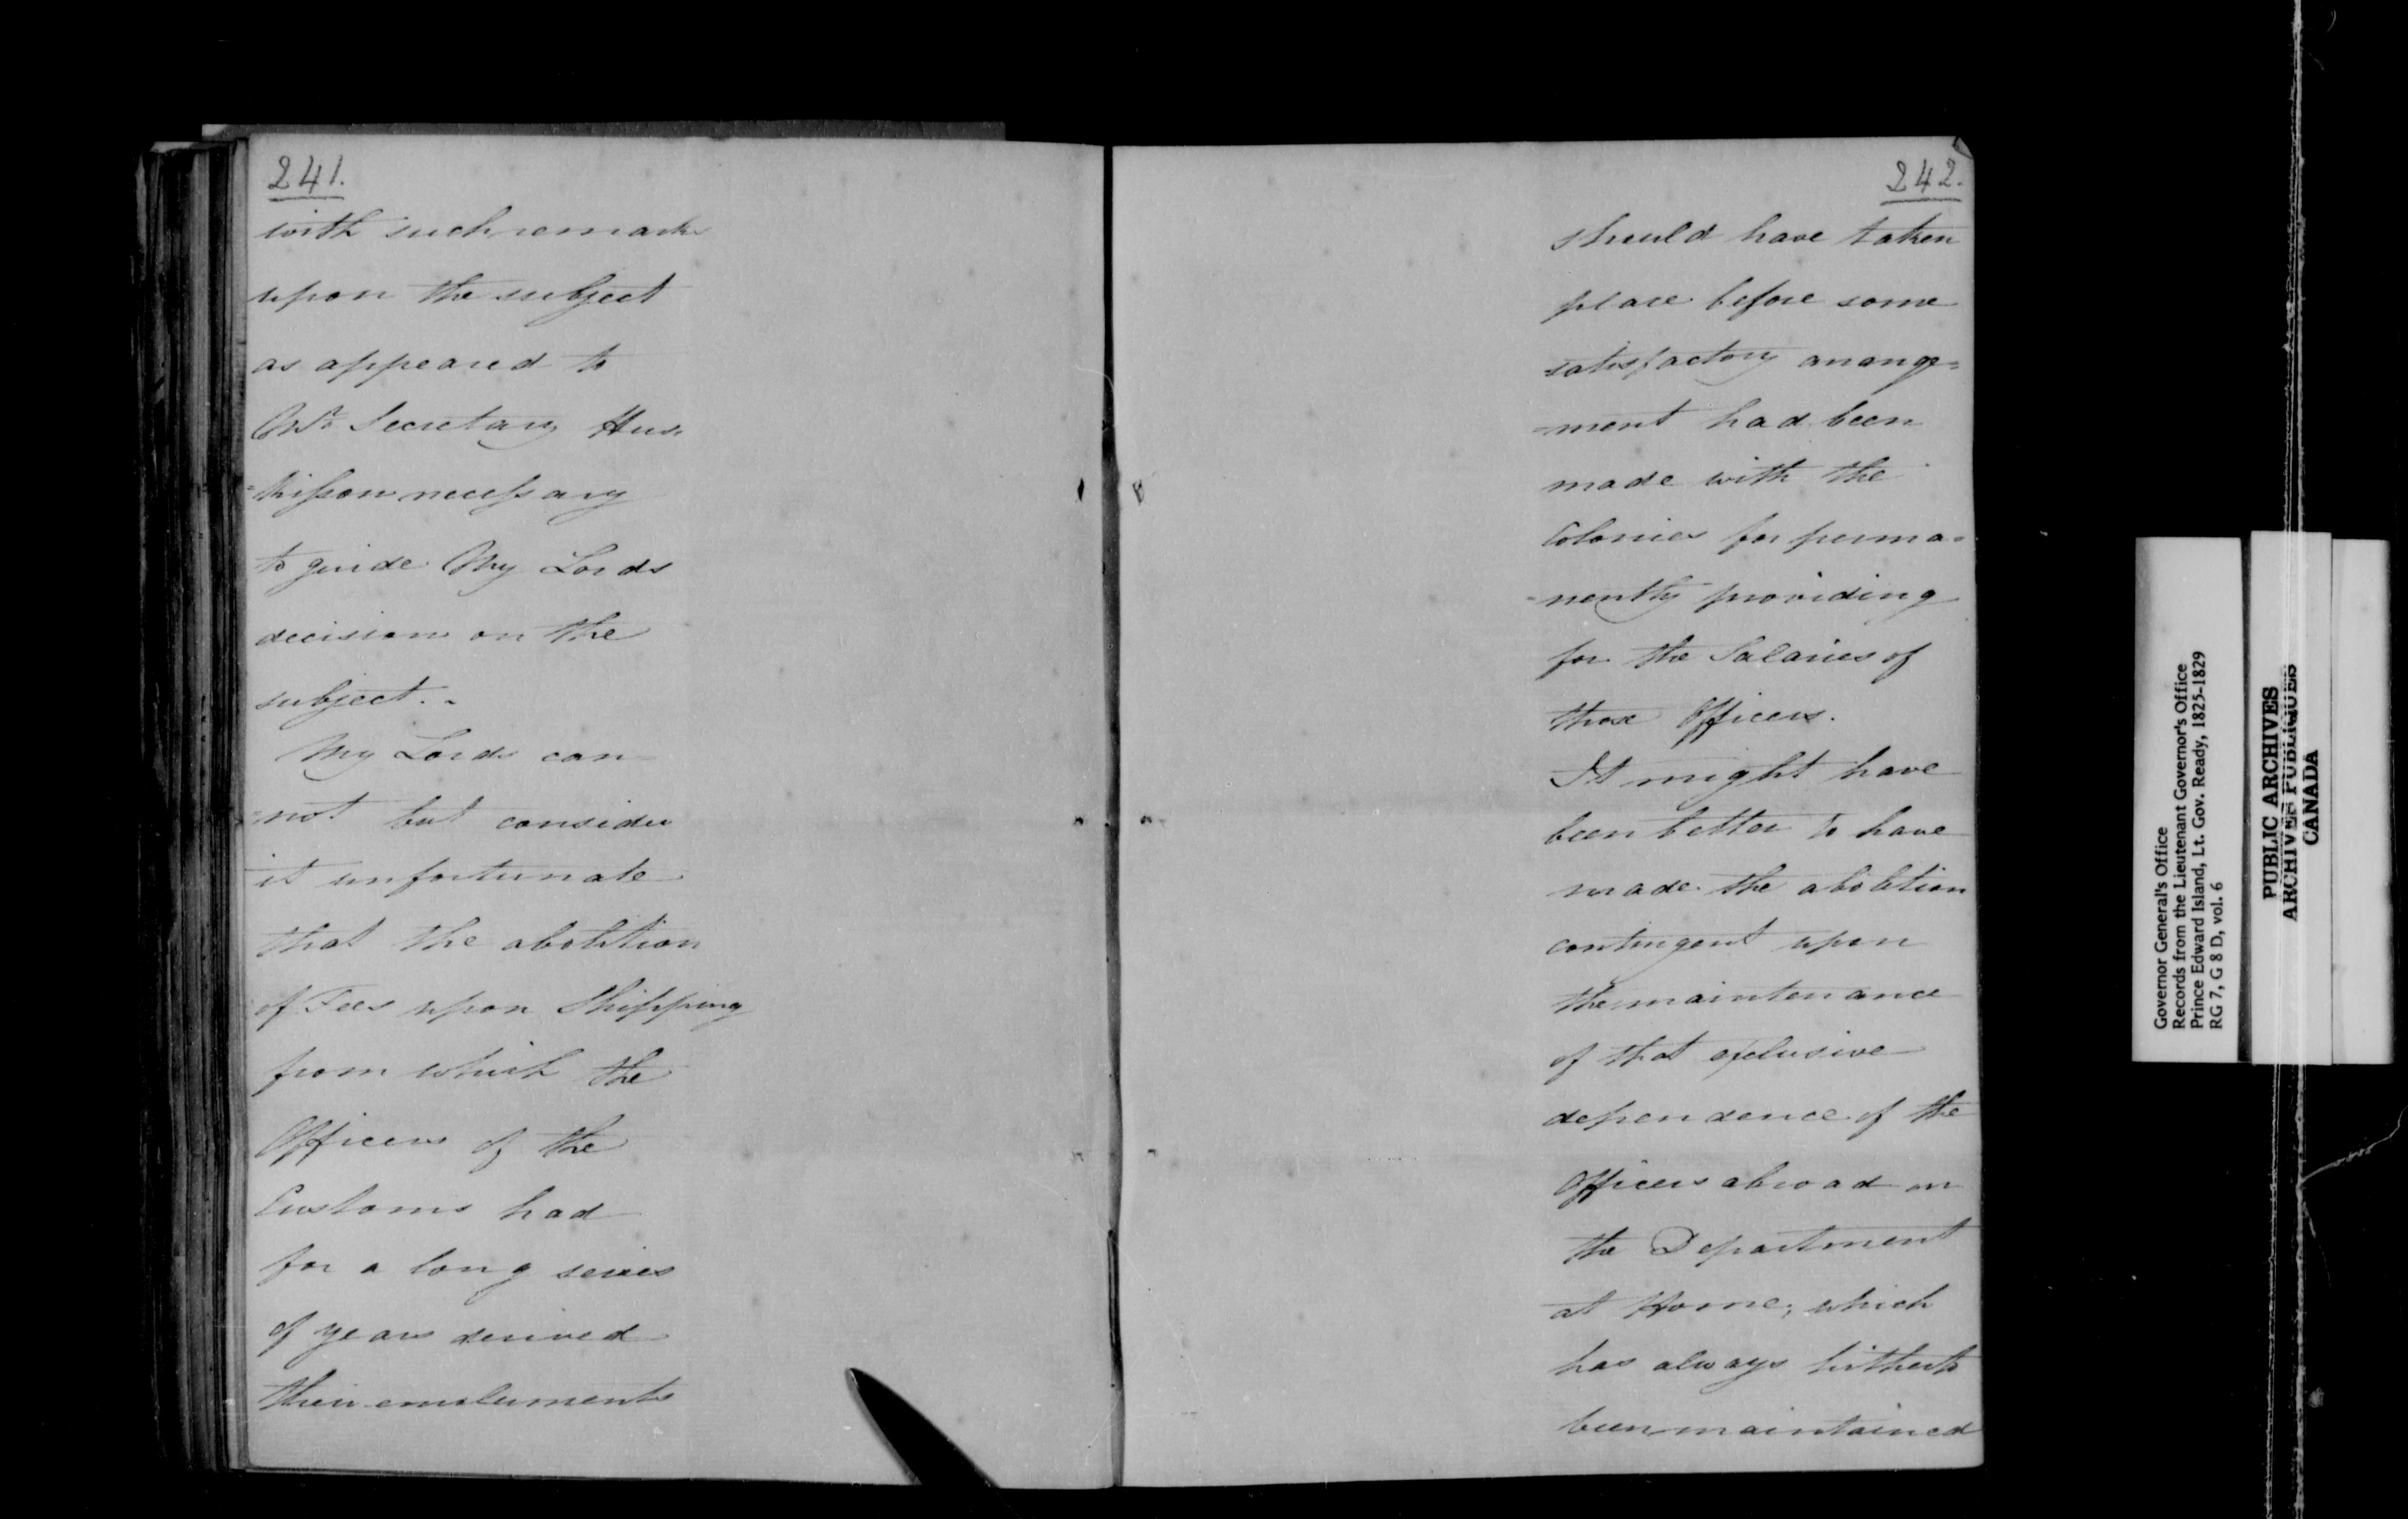 241.
with such remarks
upon the subject
as appeared to
Mr. Secretary Hus-
=kisson necessary
to guide My Lords
decision on the
subject. -
My Lords can
=not but consider
it unfortunate
that the abolition
of Fees upon Shipping
from which the
Officers of the
Customs had
for a long series
of years derived
their emoluments
242.
should have taken
place before some
satisfactory arrange=
=ment had been
made with the
Colonies for perma=
=nently providing
for the Salaries of
those Officers.
It might have
been better to have
made the abolition
contingent upon
the maintenance
of that exclusive
dependence of the
Officers abroad on
the Department
at Home; which
has always hitherto
been maintained
Governor General's Office
Records from the Lieutenant Governor's Office
Prince Edward Island, Lt. Gov. Ready, 1825-1829
RG 7, G 8 D, vol. 6
PUBLIC ARCHIVES
ARCHIVES PUBLIQUES
CANADA